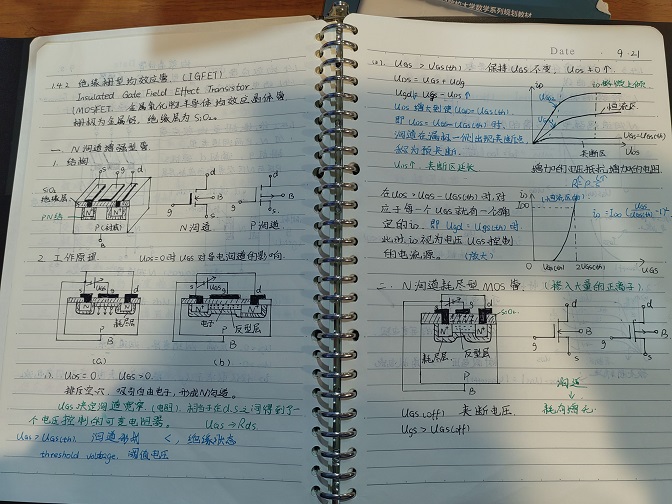 1.4.2 绝缘栅型场效应管 (IGFET)
Insulated Gate Field Effect Transistor
(MOSFET, 金属氧化物半导体场效应晶体管
栅极为金属铝, 绝缘层为SiO₂.
一. N沟道增强型管
1. 结构
SiO₂
绝缘层
PN结
s g d
N⁺ N⁺
P(衬底)
B
d
g B
s
N沟道
d
g B
s
P沟道
2. 工作原理
UDS=0时UGS对导电沟道的影响.
UGS
s g d
N⁺ N⁺
耗尽层
P
B
(a)
UGS
s g d
N⁺ N⁺
电子 反型层
P
B
(b)
i). UDS=0 UGS>0
排斥空穴, 吸引自由电子, 形成N沟道.
UGS决定沟道宽窄(电阻), 相当于在d.s之间得到了一
个电压控制的可变电阻器. UGS→Rds
UGS>UGS(th) 沟道形成 <, 绝缘状态
threshold voltage, 阈值电压
Date 9.21
ii). UGS>UGS(th) 保持UGS不变, UDS从0↑.
UDS=UGS+Udg
UDS增大到使UGD=UGS(th)
即UDS=UGS-UGS(th)时.
沟道在漏极一侧出现夹断点
称为预夹断.
UDS↑ 夹断区延长
iD
恒流区
夹断区
UGS=UGS(th)
UDS
增加的电压抵抗增加的电阻
在UDS>UGS-UGS(th)时, 对
应于每一个UGS就有一个确
定的iD. 即Ugd=Ugs(th)时.
此时iD视为电压UGS控制
的电流源. (放大)
iD
IDO
UGS(th) 2UGS(th)
二. N沟道耗尽型MOS管. (掺入大量的正离子)
s g d
SiO₂
N⁺ N⁺
耗尽层. 反型层
P
B
d
g B
s
d
g B
s
沟道
UGS(off) 夹断电压.
UGS>UGS(off)